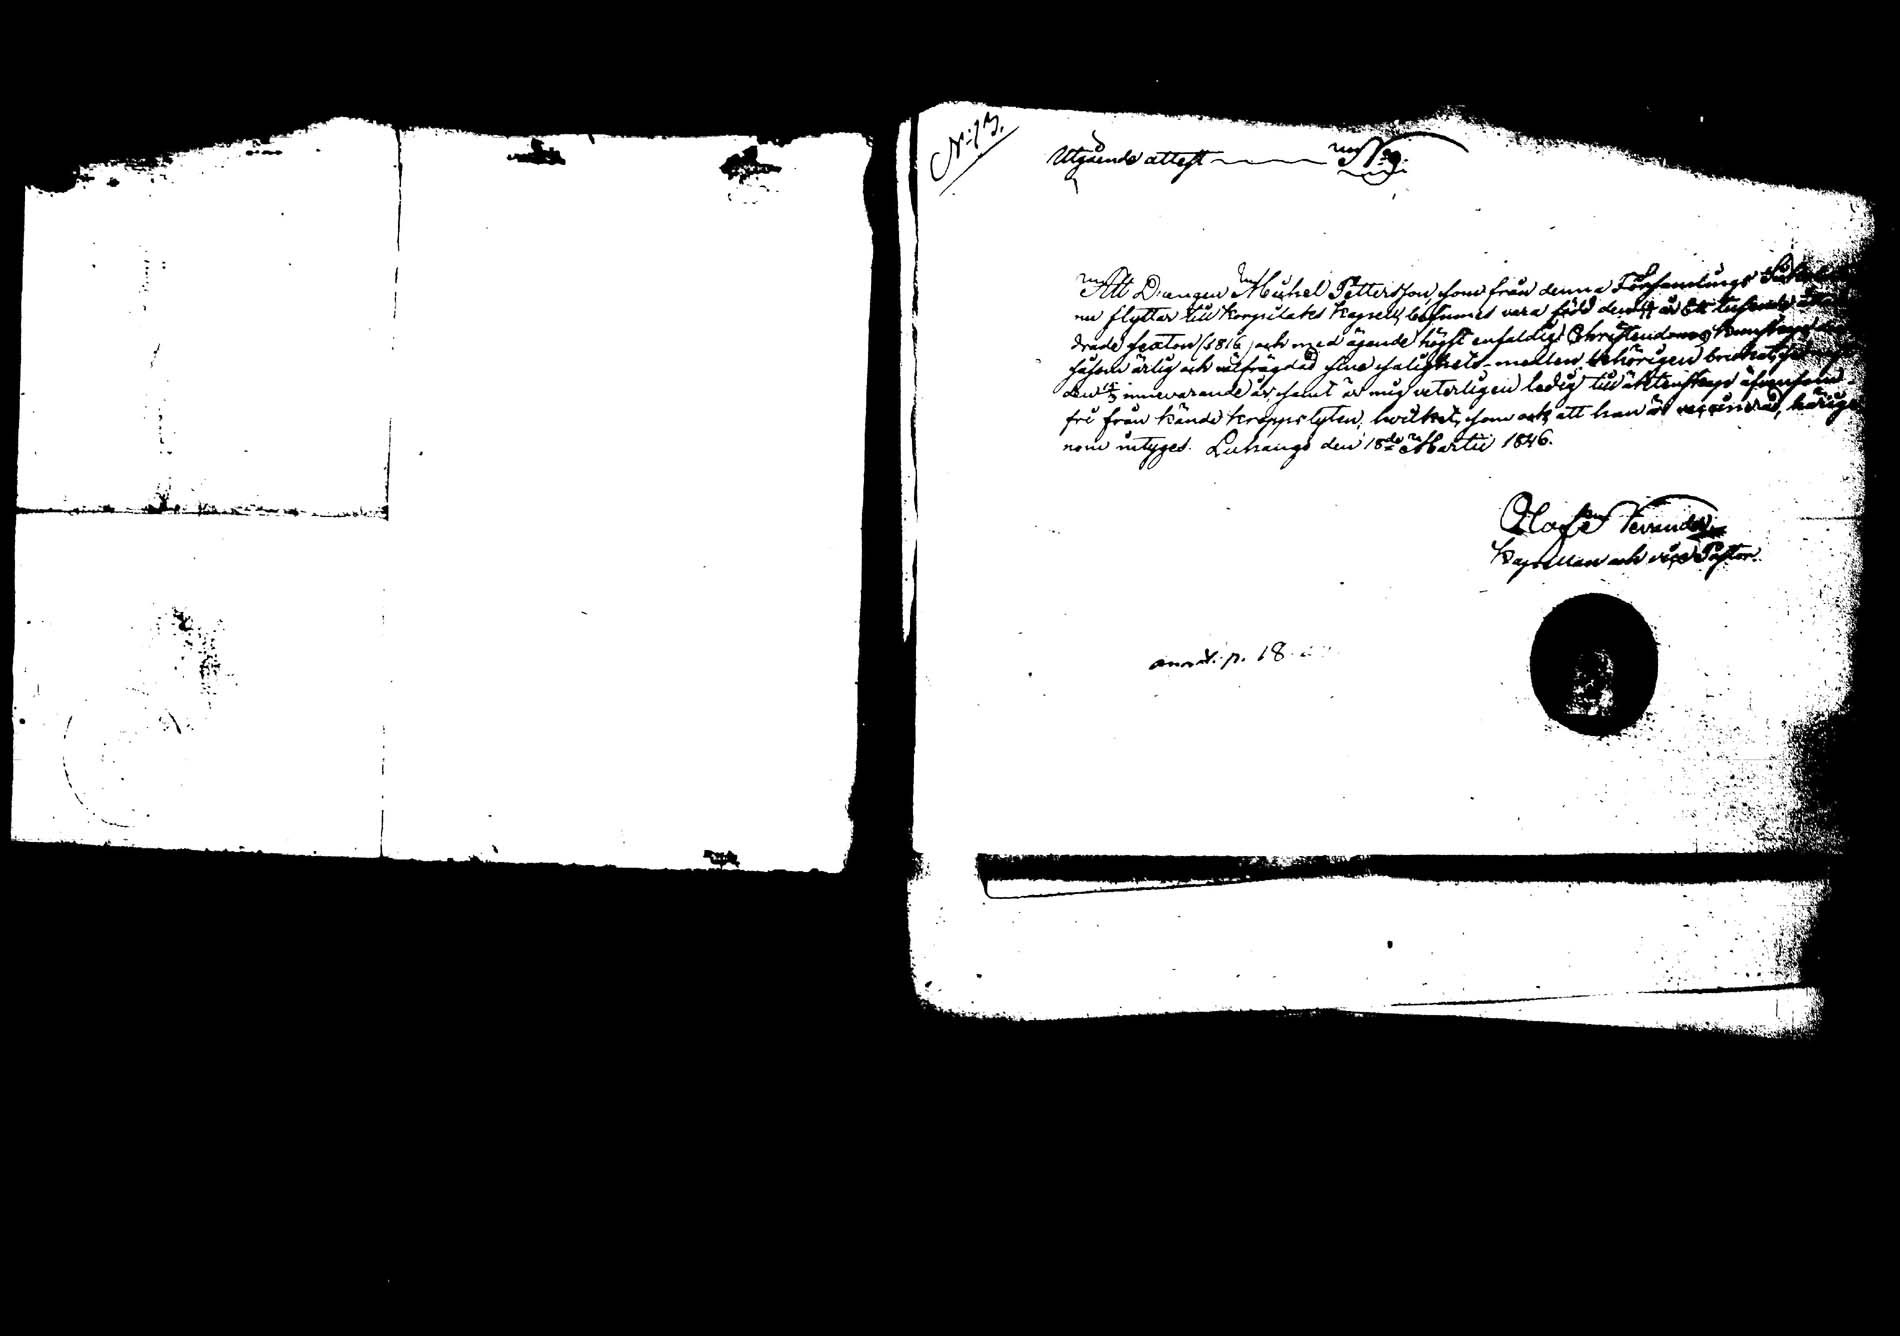 N:13.
Utgående attest No 9.
Att Drängen Michel Pettersson, som från denna Församlings
nu flyttar till Korpilaks Kapell, befunnes vara född den år Ett tusende
drade sexton (1816) och med ägande högst enfaldig Christendoms kunskap
såsom ärlig och sine salighets-medlen behörigen brukat,
den innevarande år, samt är mig veterligen ledig till äktenskap äfvensom
fri från kände kroppslyten; hvilket, som ock, att han är vaccinerad, härige
nom intyges. Luhango den 18de Martii 1846.
Olof
Kapellan och vice Pastor.
p. 18